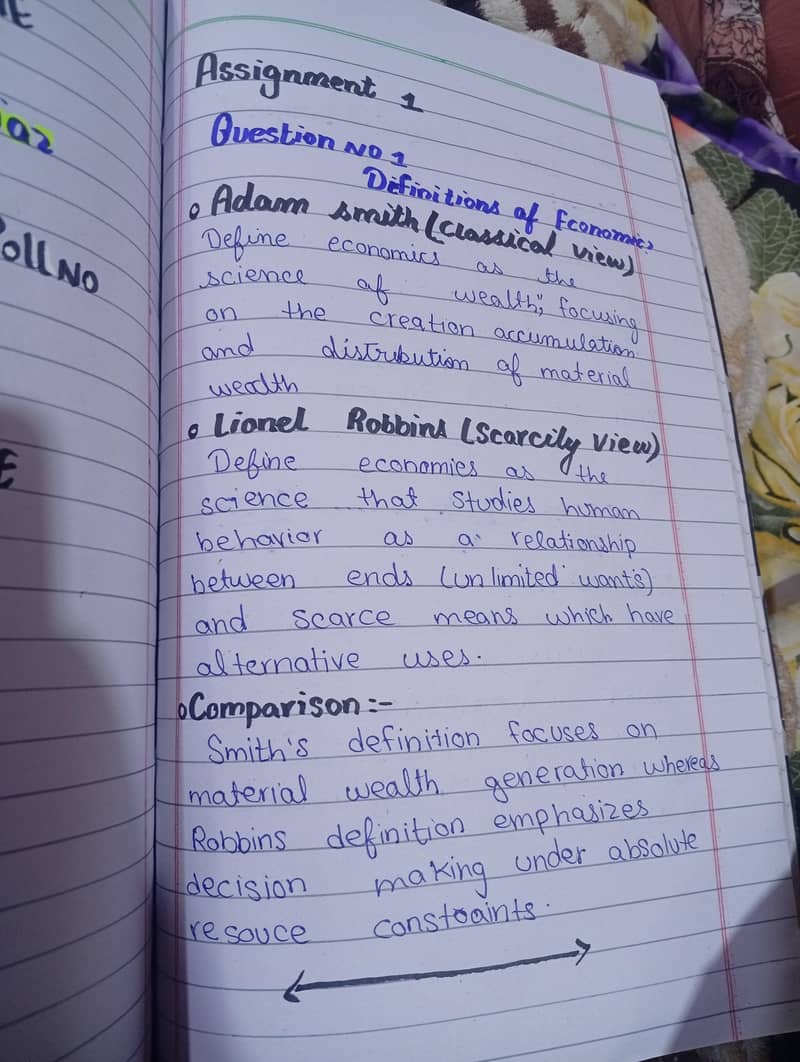 Assignment 1
Question NO 1
Definitions of Economics
Adam Smith (Classical view)
Define economics as the
science of wealth", focusing
on the creation accumulation
and distrubution of material
wealth
Lionel Robbins (Scarcily view)
Define economies as the
science that studies human
behavior as a relationship
between ends (unlimited wants)
and scarce means which have
alternative uses.
Comparison:-
Smith's definition focuses on
material wealth generation whereas
Robbins definition emphasizes
decision making under absolute
resouce constraints.
oll NO